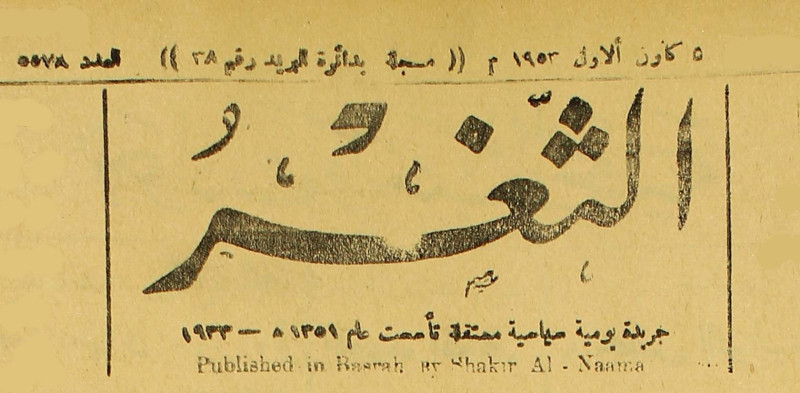 ٥ كانون ألاول ١٩٥٣ م (( مسجلة بدائرة البريد رقم ٢٨ )) العدد ٥٥٧٨
الثغر
جريدة يومية سياسية مستقلة تأسست عام ١٣٥١ ه — ١٩٣٣
Published in Basrah by Shakir Al - Naama